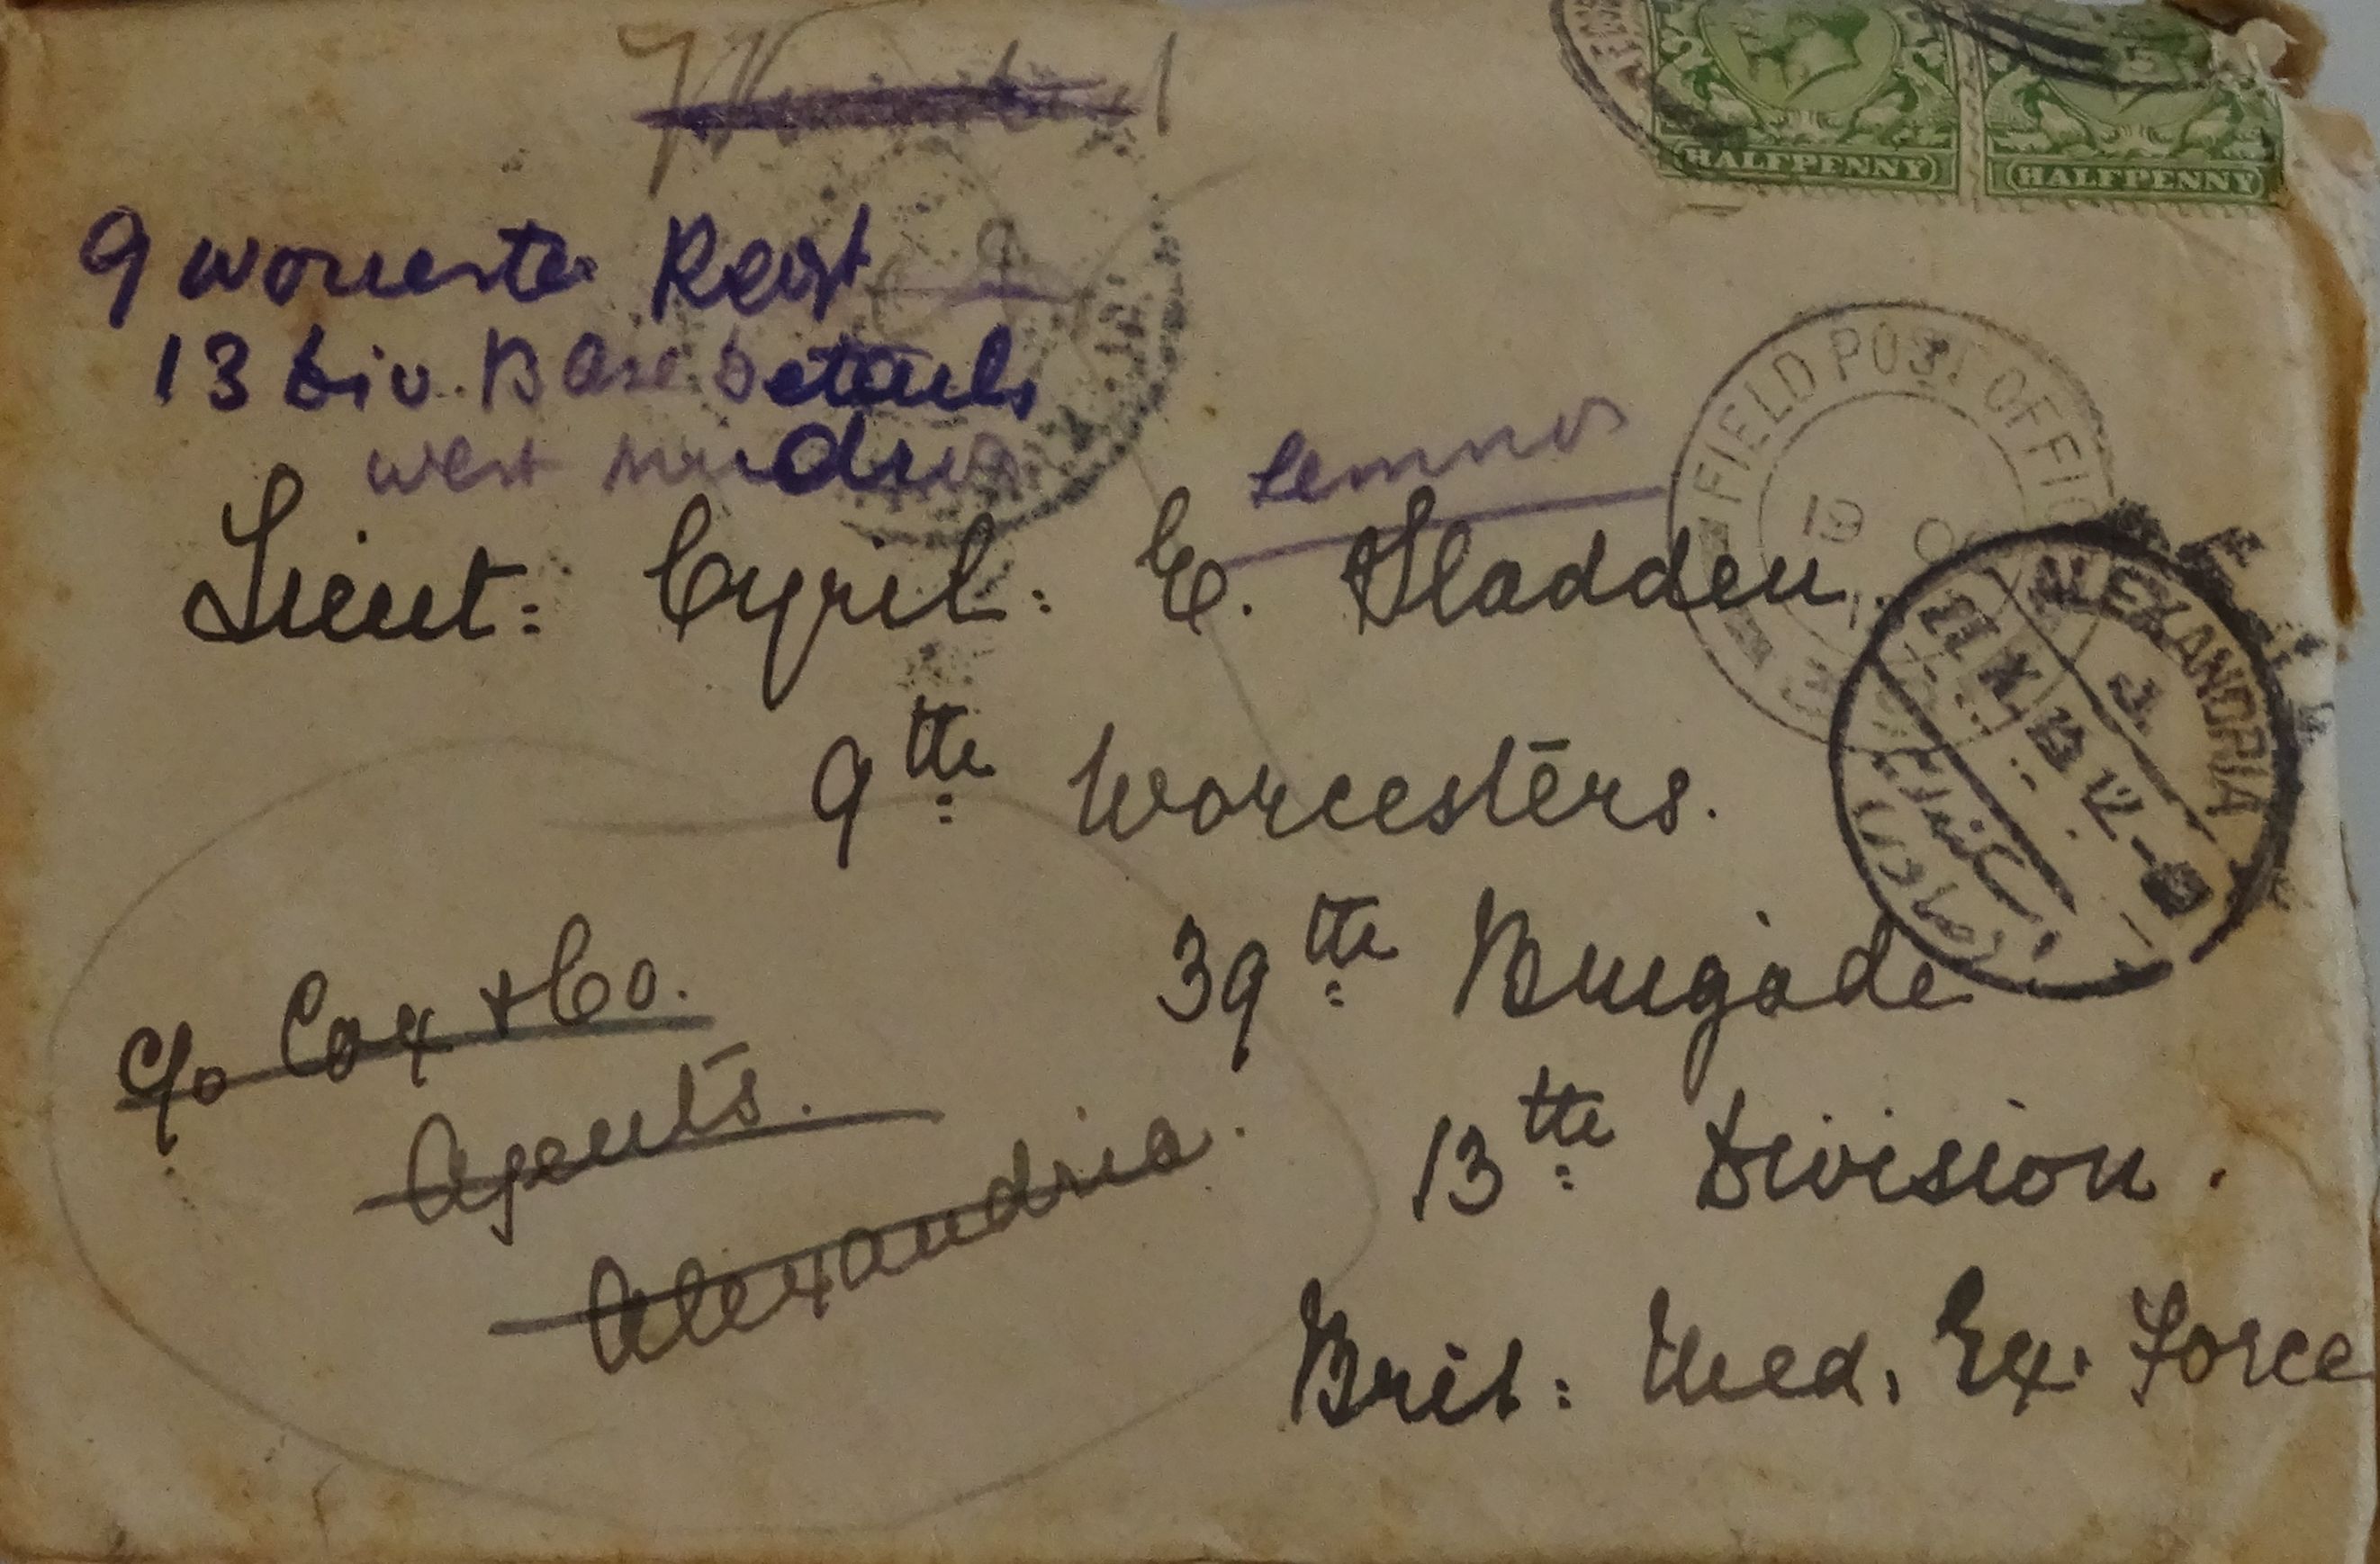 HALFPENNY HALFPENNY
9 Worcester Regt
13 Div. Base Details
West Mudros
Lemnos
FIELD POST OFFICE
19 OC
Lieut: Cyril: E. Sladden.
ALEXANDRIA
21 X 15
9th Worcesters.
39th Brigade
13th Division.
Brit: Med. Ex. Force
c/o Cox & Co.
Agents.
Alexandria.